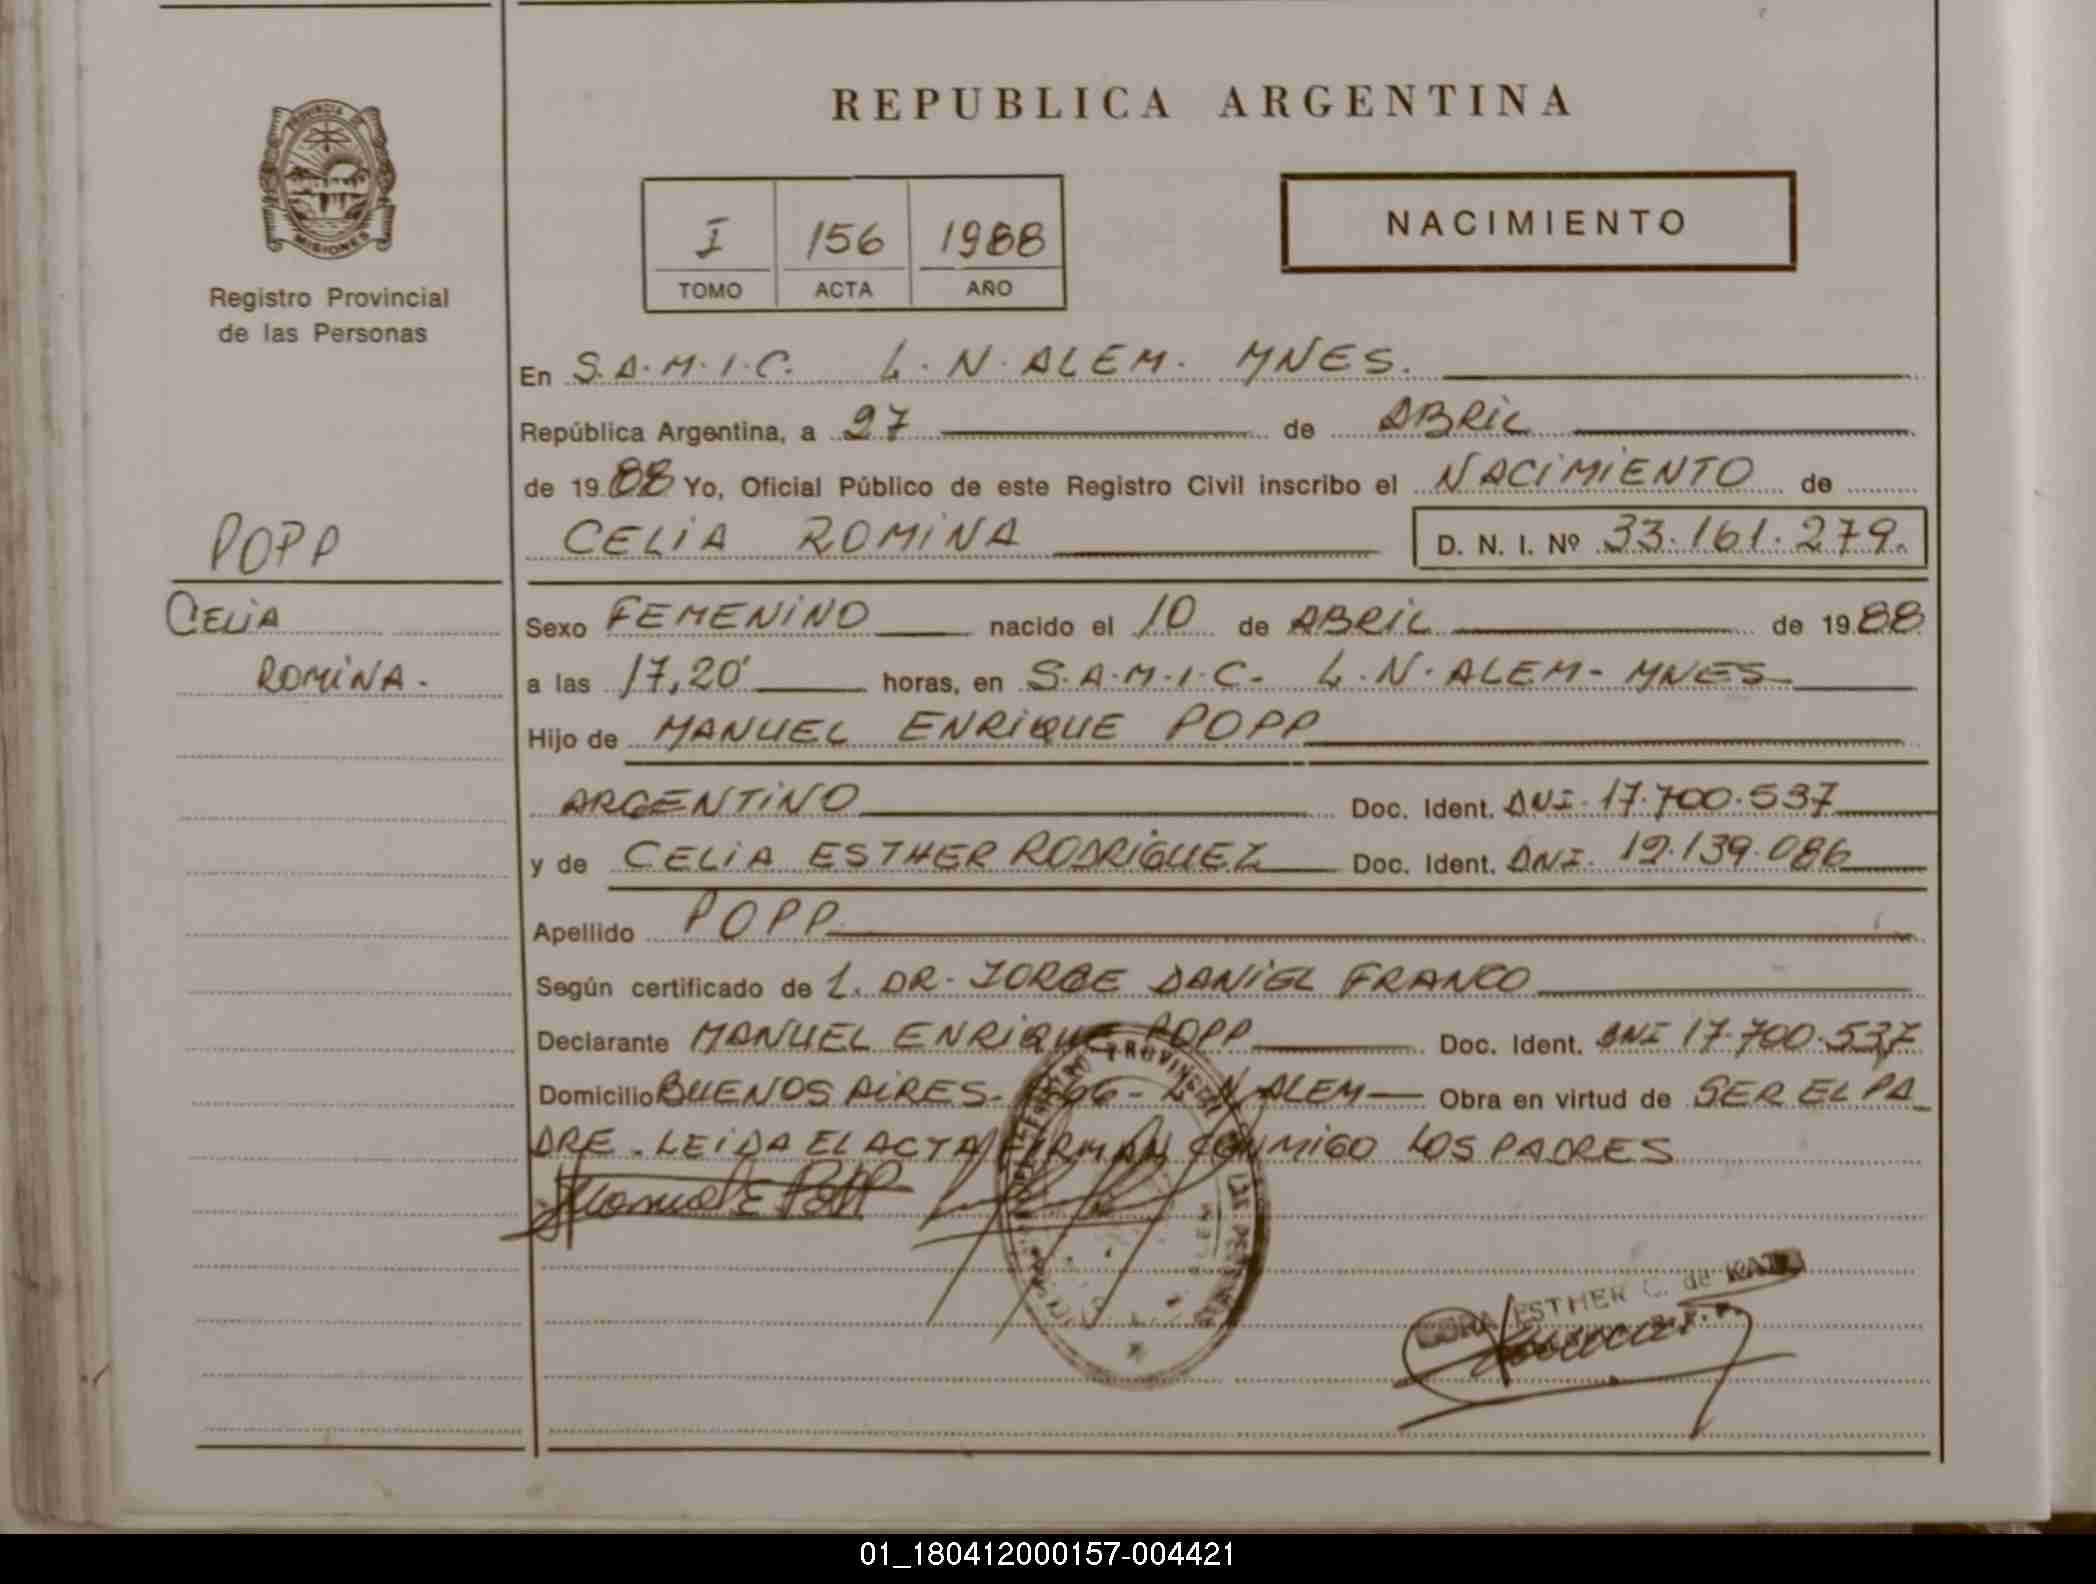 REPUBLICA ARGENTINA
PROVINCIA DE
MISIONES
Registro Provincial
de las Personas
I 156 1988
TOMO ACTA AÑO
NACIMIENTO
En S.A.M.I.C. L.N.ALEM. MNES.
República Argentina, a 27 de ABRIL
de 19 88 Yo, Oficial Público de este Registro Civil inscribo el NACIMIENTO de
CELIA ROMINA D. N. I. Nº 33.161.279.
POPP
CELIA
ROMINA.
Sexo FEMENINO nacido el 10 de ABRIL de 19 88
a las 17,20' horas, en S.A.M.I.C- L.N.ALEM- MNES
Hijo de MANUEL ENRIQUE POPP
ARGENTINO Doc. Ident. DNI. 17.700.537
y de CELIA ESTHER RODRIGUEZ Doc. Ident. DNI. 12.139.086
Apellido POPP
Según certificado de L. DR. JORGE DANIEL FRANCO
Declarante MANUEL ENRIQUE POPP Doc. Ident. DNI 17.700.537
Domicilio BUENOS AIRES- L N ALEM Obra en virtud de SER EL PA
DRE. LEIDA EL ACTA FIRMAN CONMIGO LOS PADRES
Manuel E Popp
ESTHER C. de
01_180412000157-004421